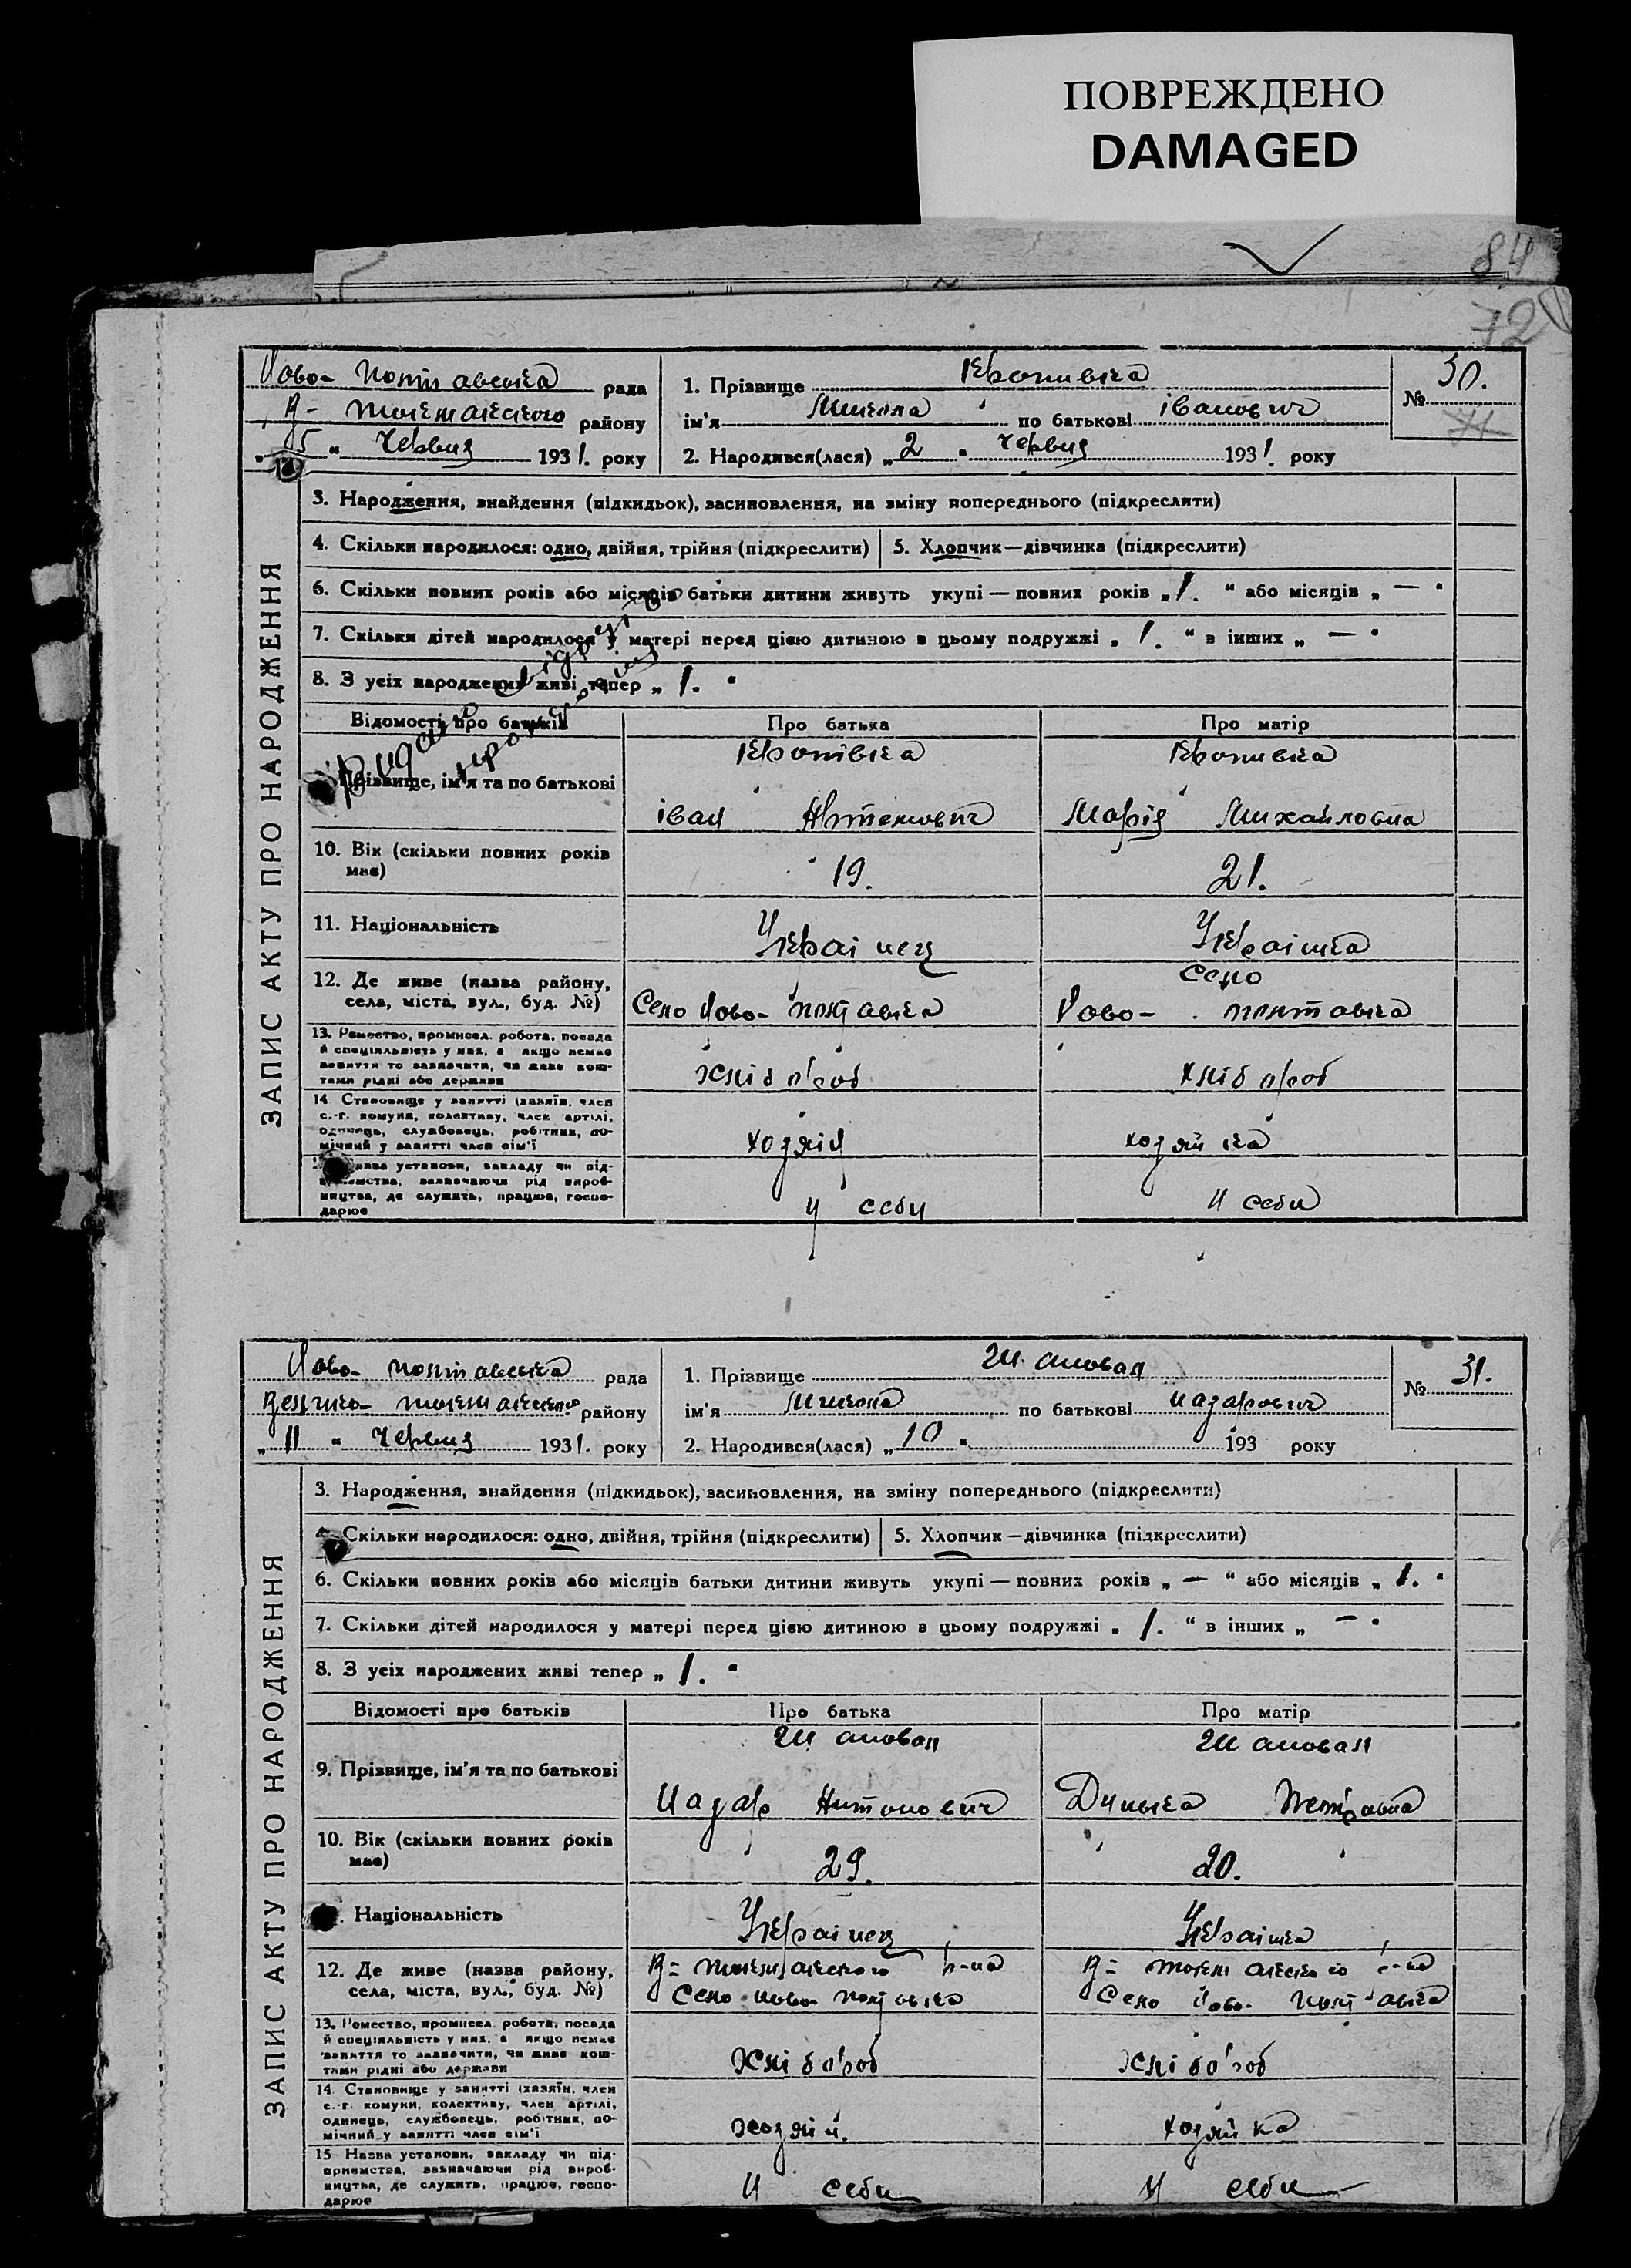 ПОВРЕЖДЕНО
DAMAGED
84
72
Ново- полтавська рада
В- токмакського району
„ 5 “ Червня 1931. року
1. Прізвище Кропивка
ім'я Микола по батькові іванович
2. Народився(лася) „ 2 “ червня 1931. року
№ 30.
71
ЗАПИС АКТУ ПРО НАРОДЖЕННЯ
3. Народження, знайдення (підкидьок), засиновлення, на зміну попереднього (підкреслити)
4. Скільки народилося: одно, двійня, трійня (підкреслити)
5. Хлопчик—дівчинка (підкреслити)
6. Скільки повних років або місяців батьки дитини живуть укупі — повних років „ 1. “ або місяців „ — “
7. Скільки дітей народилося у матері перед цією дитиною в цьому подружжі „ 1. “ в інших „ — “
8. З усіх народжених живі тепер „ 1. “
Видано
Відомості про батьків Про батька Про матір
Прізвище, ім'я та по батькові
Кропівка Кропивка
іван Артемович Марія Михайловна
10. Вік (скільки повних років має) 19. 21.
11. Національність Українец Українка
12. Де живе (назва району, села, міста, вул., буд. №)
Село Ново- полтавка
село Ново- полтавка
13. Ремество, промисел. робота, посада
й спеціяльність у них, а якщо немає
заняття то зазначити, чи живе кош-
тами рідні або держави
хлібороб хлібороб
14. Становище у занятті (хазяїн, член
с.-г. комуни, колективу, член артілі,
одинець, службовець, робітник, по-
мічний у занятті член сім'ї
хозяін хозяйка
Назва установи, закладу чи під-
приємства, зазначаючи рід вироб-
ництва, де служить, працює, госпо-
дарює
у себи у себи
Ново- полтавська рада
Велико- токмакського району
„ 11 “ Червня 1931. року
1. Прізвище Шаповал
ім'я Микола по батькові назарович
2. Народився(лася) „ 10 “ 193 року
№ 31.
ЗАПИС АКТУ ПРО НАРОДЖЕННЯ
3. Народження, знайдення (підкидьок), засиновлення, на зміну попереднього (підкреслити)
4. Скільки народилося: одно, двійня, трійня (підкреслити)
5. Хлопчик—дівчинка (підкреслити)
6. Скільки повних років або місяців батьки дитини живуть укупі — повних років „ — “ або місяців „ 1. “
7. Скільки дітей народилося у матері перед цією дитиною в цьому подружжі „ 1. “ в інших „ — “
8. З усіх народжених живі тепер „ 1. “
Відомості про батьків Про батька Про матір
9. Прізвище, ім'я та по батькові
Шаповал Шаповал
Назар Антонович Петровна
10. Вік (скільки повних років має) 29. 20.
Національність Українец Українка
12. Де живе (назва району, села, міста, вул., буд. №)
В= токмакського р-на
Село ново полтавка
В= токмакського р-на
Село Ново- полтавка
13. Ремество, промисел. робота, посада
й спеціяльність у них, а якщо немає
заняття то зазначити, чи живе кош-
тами рідні або держави
хлібороб хлібороб
14. Становище у занятті (хазяїн, член
с.-г. комуни, колективу, член артілі,
одинець, службовець, робітник, по-
мічний у занятті член сім'ї
хозяйн. хозяйка
15. Назва установи, закладу чи під-
приємства, зазначаючи рід вироб-
ництва, де служить, працює, госпо-
дарює
У себи У себи